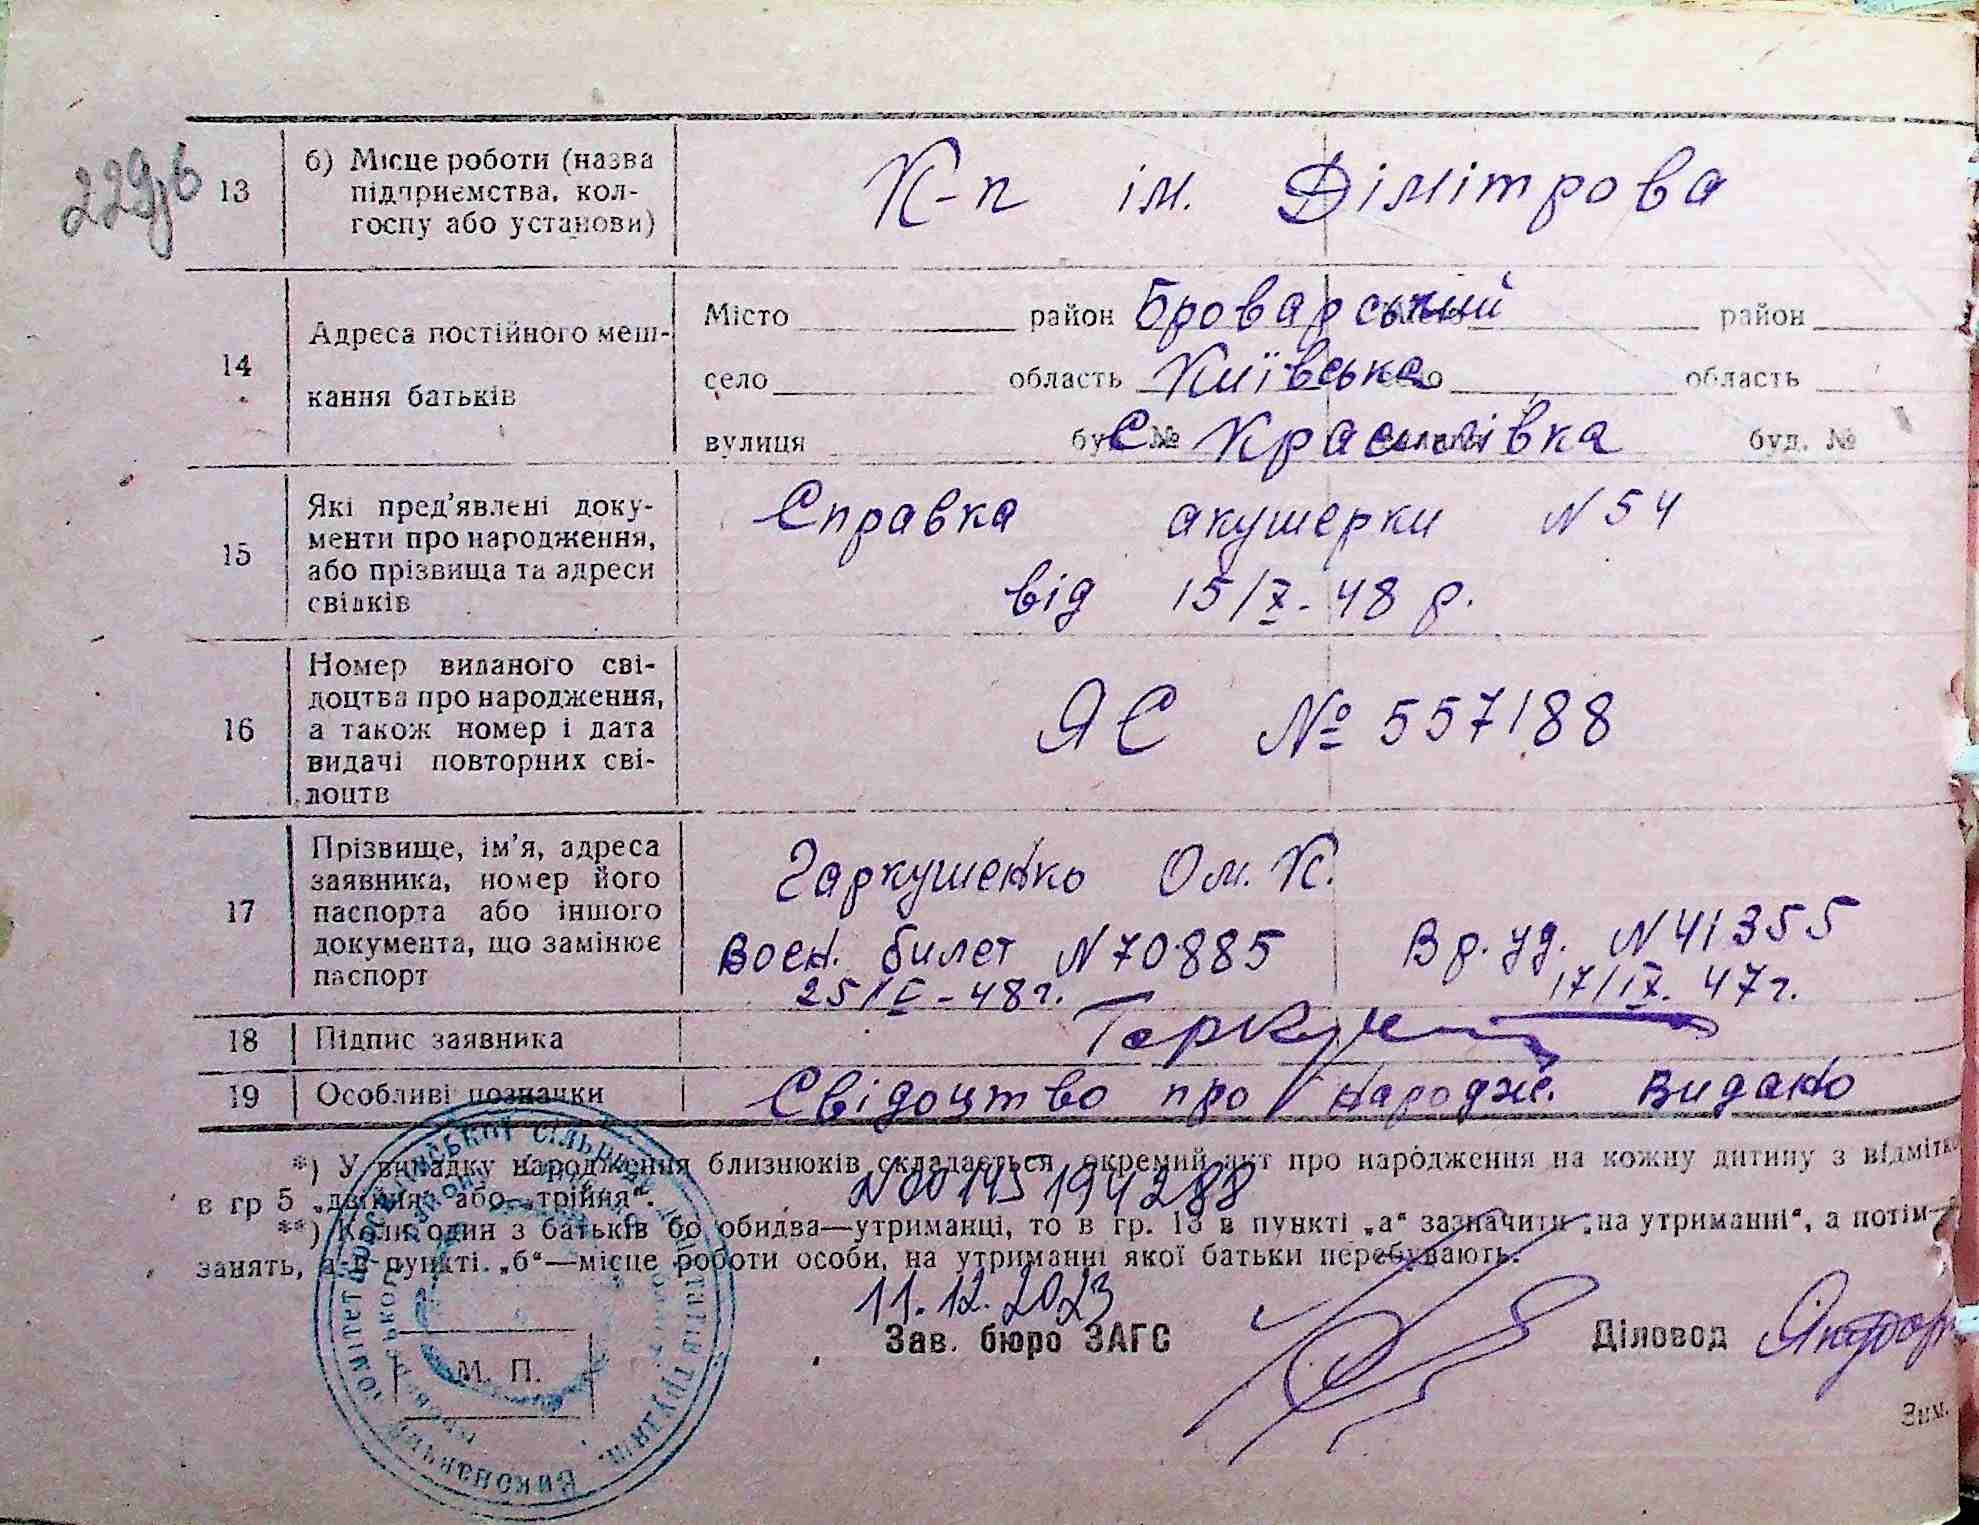 229зв
13 б) Місце роботи (назва підприємства, кол-госпу або установи) К-п ім. Дімітрова
14 Адреса постійного меш-кання батьків
Місто район Броварський район
село область Київська область
вулиця буд. № С Красилівка буд. №
15 Які пред'явлені доку-менти про народження, або прізвища та адреси свідків
Справка акушерки N 54
від 15/X - 48 р.
16 Номер виданого сві-доцтва про народження, а також номер і дата видачі повторних сві-доцтв
ЯЄ № 557188
17 Прізвище, ім'я, адреса заявника, номер його паспорта або іншого документа, що замінює паспорт
Гаркушенко Ом. К.
Воен. билет N 70885 Вр. уд. N 41355
48 г. 17/IX. 47 г.
18 Підпис заявника
19 Особливі позначки Свідоцтво про народж. видано
*) У випадку народження близнюків складається окремий акт про народження на кожну дитину з відміткою
в гр 5 „двійня“ або „трійня“.
**) Коли один з батьків бо обидва—утриманці, то в гр. 13 в пункті „а“ зазначити „на утриманні“, а потім
занять, а в пункті „б“—місце роботи особи, на утриманні якої батьки перебувають.
11.12.2023
Зав. бюро ЗАГС Діловод
М. П.
Зим.